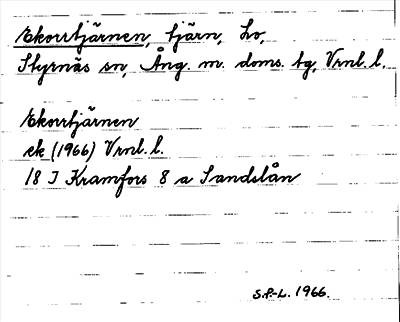 Ekorrtjärnen, tjärn, Lo,
Styrnäs sn, Ång. m. doms. tg, Vrnl. l.
Ekorrtjärnen
ek (1966) Vrnl. l.
18 I Kramfors 8 a Sandslån
S.P-L. 1966.